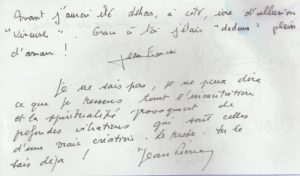 Avant j'aurai été dehors, à côté, ivre d'illusion
"Vineuse". Grace à toi j'étais "dedans" plein
d'amour !
Jean Francois
Je ne sais pas, je ne peux dire
ce que je ressens tant l'incantation
et la spiritualité provoquent de
profondes vibrations qui sont celles
d'une vraie création. Le reste. tu le
sais déjà !
Jean Pierre